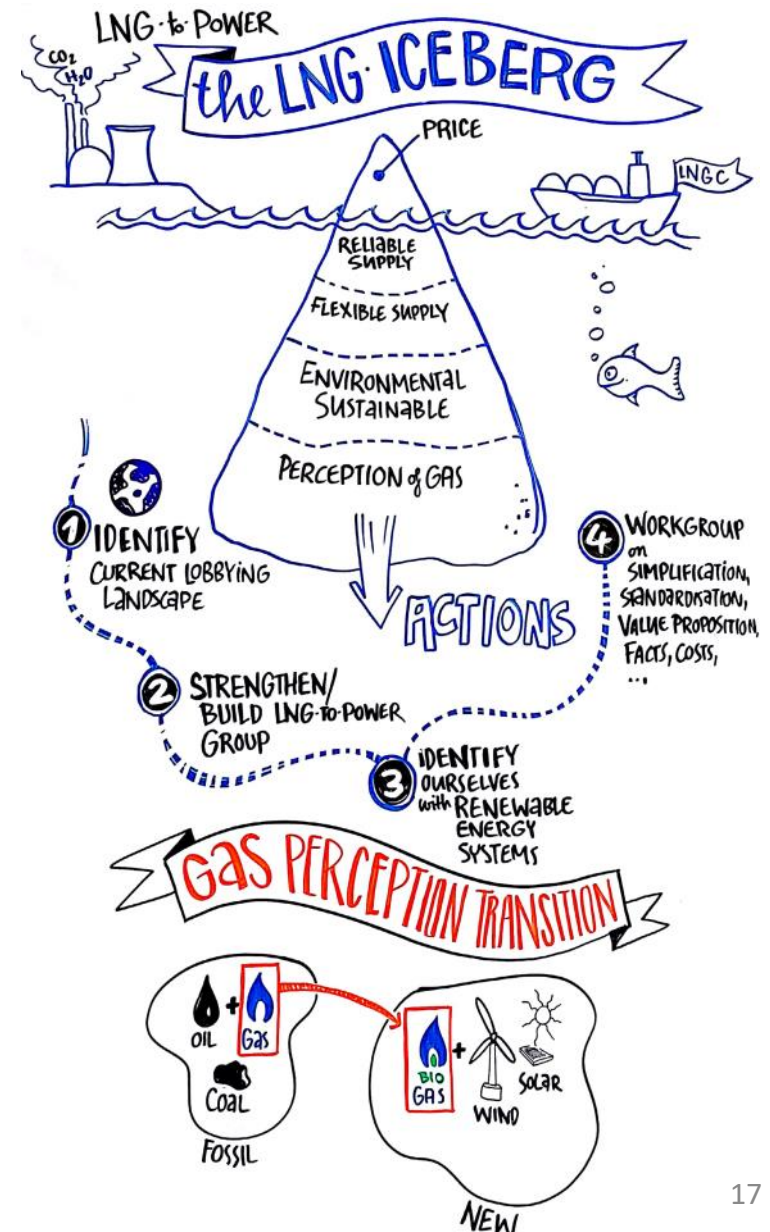 LNG-to-POWER
the LNG·ICEBERG
CO2
H2O
PRICE
LNGC
RELIABLE
SUPPLY
FLEXIBLE SUPPLY
ENVIRONMENTAL
SUSTAINABLE
PERCEPTION of GAS
1 IDENTIFY
CURRENT LOBBYING
LANDSCAPE
ACTIONS
2 STRENGTHEN/
BUILD LNG-to-POWER
GROUP
3 IDENTIFY
OURSELVES
with RENEWABLE
ENERGY
SYSTEMS
4 WORKGROUP
on
SIMPLIFICATION,
STANDARDISATION,
VALUE PROPOSITION,
FACTS, COSTS,
...
GAS PERCEPTION TRANSITION
OIL + GAS
COAL
FOSSIL
BIO
GAS
+
WIND
SOLAR
NEW
17